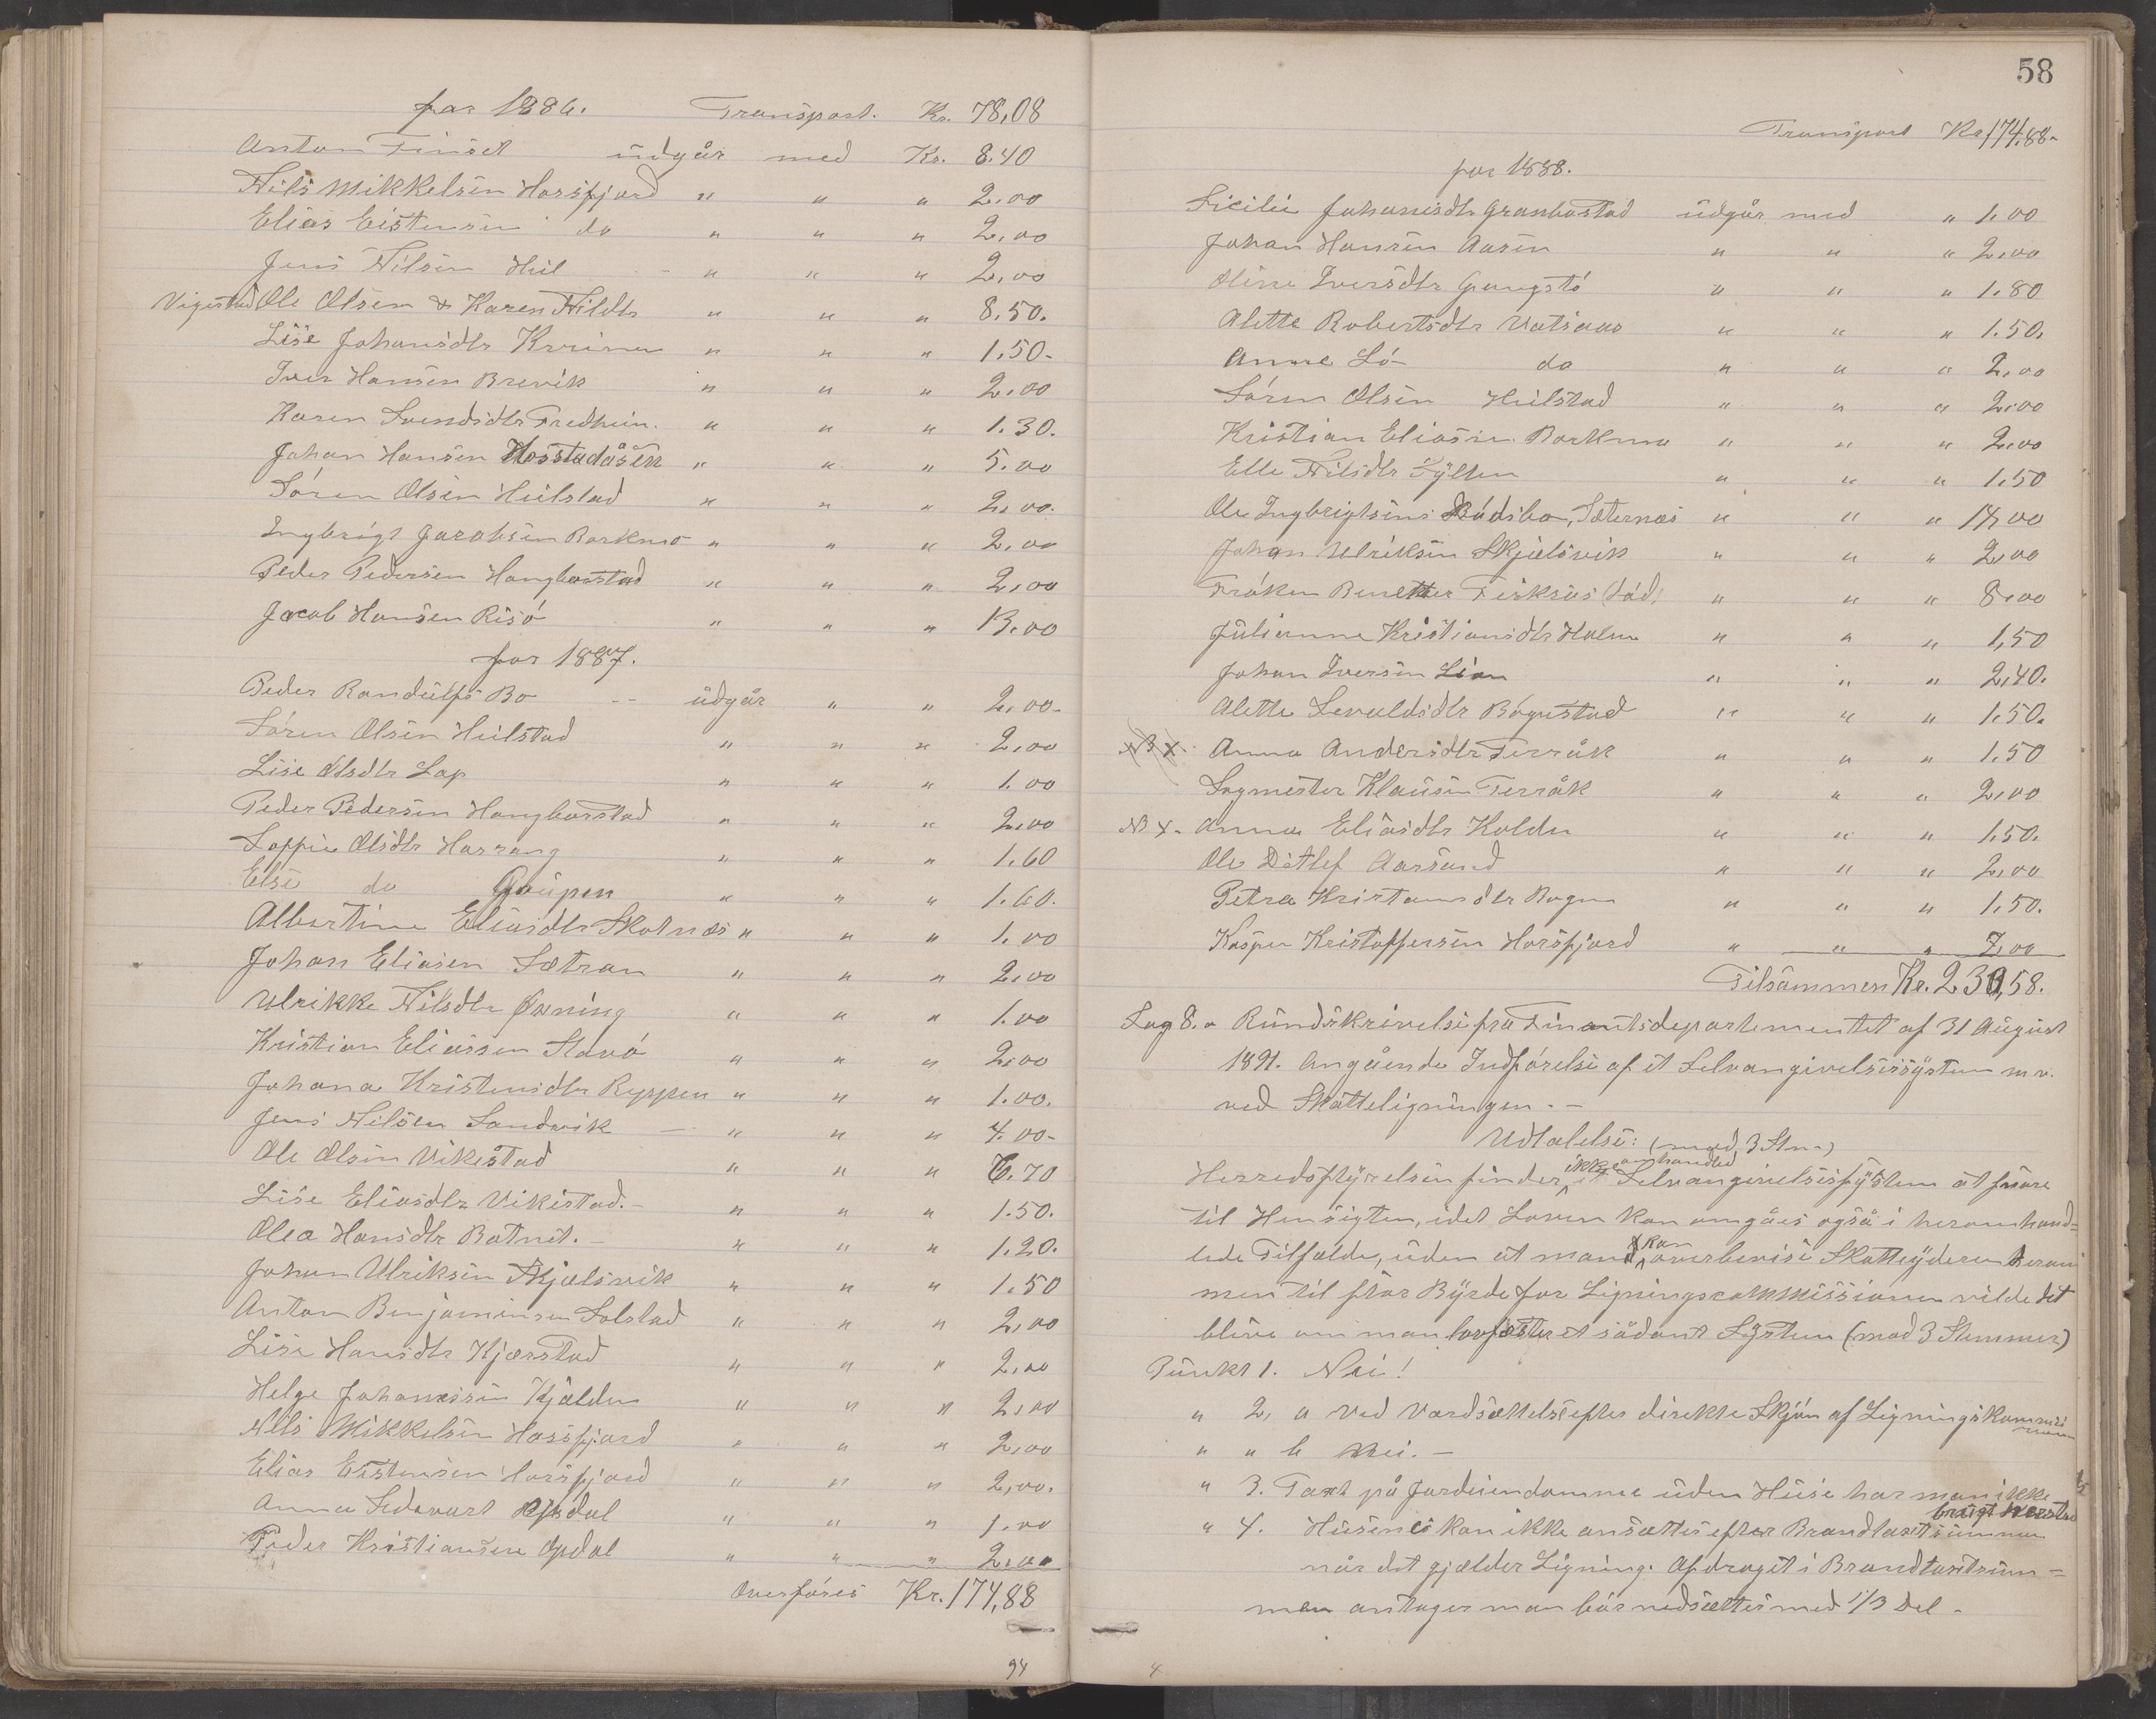 for 1886. Transport. Kr. 78,08
Anton Finset udgår med Kr. 8.40
Nils Mikkelsen Horsfjord " " " 2,00
Elias Eistensen do " " " 2,00
Jens Nilsen Heil " " " 2,00
Vigestad Ole Olsen & Karen Nildtr " " " 8.50.
Lise Johansdtr " " " 1.50-
Iver Hansen Brevik " " " 2,00
Karen Svendsdtr Fredheim. " " " 1.30.
Johan Hansen Hosstadåsen " " " 5.00
Sören Olsen Heilstad " " " 2,00.
Ingbrigt Jacobsen Borkmo " " " 2,00
Peder Pedersen Hongbarstad " " " 2,00
Jacob Hansen Risö " " " 13,00
for 1887.
Peder Randulfs Bo -- udgår " " 2,00-
Sören Olsen Heilstad " " " 2,00
Lise Olsdtr Lap " " " 1.00
Peder Pedersen Hongbarstad " " " 2,00
Soffie Olsdtr Horrang " " " 1.60
Else do Gaupen " " " 1.60.
Albertine Eliasdtr Skotnæs " " " 1.00
Johan Eliasen Sætran " " " 2,00
Ulrikke Nilsdtr Øvning " " " 1.00
Kristian Eliassen Stavö " " " 2,00
Johana Kristensdtr Reppen " " " 1.00.
Jens Nilsen Sandvik - " " " 4.00-
Ole Olsen Vikestad " " " 6.70
Lise Eliasdtr Vikestad.- " " " 1.50.
Olea Hansdtr Botnet.- " " " 1.20.
Johan Ulriksen Skjelsvik " " " 1.50
Anton Benjaminsen Solstad " " " 2,00
Lise Hansdtr Kjærstad " " " 2,00
Helge Johannesen Kjelden " " " 2,00
Nils Mikkelsen Horsfjord " " " 2,00
Elias Eistensen Horsfjord " " " 2,00.
Anna Sedevart Opdal " " " 1.00
Peder Kristiansen Opdal " " " 2,00
Overføres Kr. 174,88
94
58
Transport Kr 174.88-
for 1888.
Sicilie Johanesdtr Granbostad udgår med " 1.00
Johan Hansen Aasen " " " 2,00
Iversdtr " " " 1.80
Alette Robertsdtr Vatsaas " " " 1.50.
Anne Lö- do " " " 2,00
Sören Olsen Heilstad " " " 2,00
Kristian Eliasen Borkmo " " " 2,00
Elle Nilsdtr Fylten " " " 1.50
Ole Ingbrigtsens Dödsbo, Sæternæs " " " 14,00
Johan Ulriksen Skjelsvik " " " 2,00
Fröken (död) " " " 8,00
Julianne Kristiansdtr Holm " " " 1,50
Johan Iversen Lian " " " 2,40.
Alette Sevaldsdtr Bogestad " " " 1.50.
NB X. Anna Andersdtr Terråk " " " 1.50
Sagmester Klausen Terråk " " " 2,00
NB X- Anna Eliasdtr Kolden " " " 1.50.
Ole Ditlef Aarsand " " " 2,00
Petra Kristansdtr Bogen " " " 1.50.
Kasper Kristoffersen Horsfjord " " " 7,00
Tilsammen Kr. 230,58.
Sag 8. Rundskrivelse fra Finantsdepartementet af 31 August
1891. Angående Indförelse af et Selvangivelsessystem m v.
ved Skatteligningen.-
Udtalelse: (mod 3 Stm)
ikke omhandlede
Herredsstyrelsen finder et Selvangivelsessystem at svare
til Hensigten, idet Loven kan omgåes også i heromhand=
kan
lede Tilfælde, uden at mand overbevise Skatteyderen herom
men til stor Byrde for Ligningscommissionen vilde det
blive om man lovfæster et sådant System (mod 3 Stemmer)
Punkt 1. Nei!
" 2, a Ved Værdsættelse efter direkte Skjön af Ligningskommissionen
" " b Nei.-
" 3. Taxt på Jordeiendomme uden Huse har man ikke
bragt
" 4. Husene kan ikke ansættes efter Brandtaxtsummen
når det gjælder Ligning. Afdraget i Brandtaxtsum=
men antager man bör nedsættes med 1/3 Del -